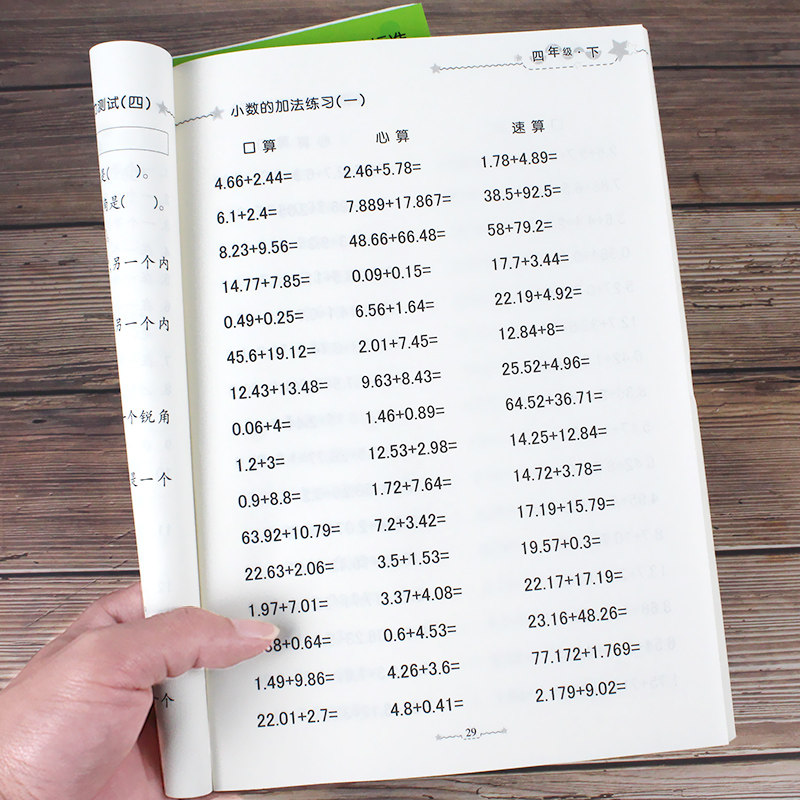 测试(四)
是(　)。
是(　)。
另一个内
另一个内
个锐角
是一个
个
四年级·下
小数的加法练习(一)
口算 心算 速算
4.66+2.44= 2.46+5.78= 1.78+4.89=
6.1+2.4= 7.889+17.867= 38.5+92.5=
8.23+9.56= 48.66+66.48= 58+79.2=
14.77+7.85= 0.09+0.15= 17.7+3.44=
0.49+0.25= 6.56+1.64= 22.19+4.92=
45.6+19.12= 2.01+7.45= 12.84+8=
12.43+13.48= 9.63+8.43= 25.52+4.96=
0.06+4= 1.46+0.89= 64.52+36.71=
1.2+3= 12.53+2.98= 14.25+12.84=
0.9+8.8= 1.72+7.64= 14.72+3.78=
63.92+10.79= 7.2+3.42= 17.19+15.79=
22.63+2.06= 3.5+1.53= 19.57+0.3=
1.97+7.01= 3.37+4.08= 22.17+17.19=
+0.64= 0.6+4.53= 23.16+48.26=
1.49+9.86= 4.26+3.6= 77.172+1.769=
22.01+2.7= 4.8+0.41= 2.179+9.02=
29